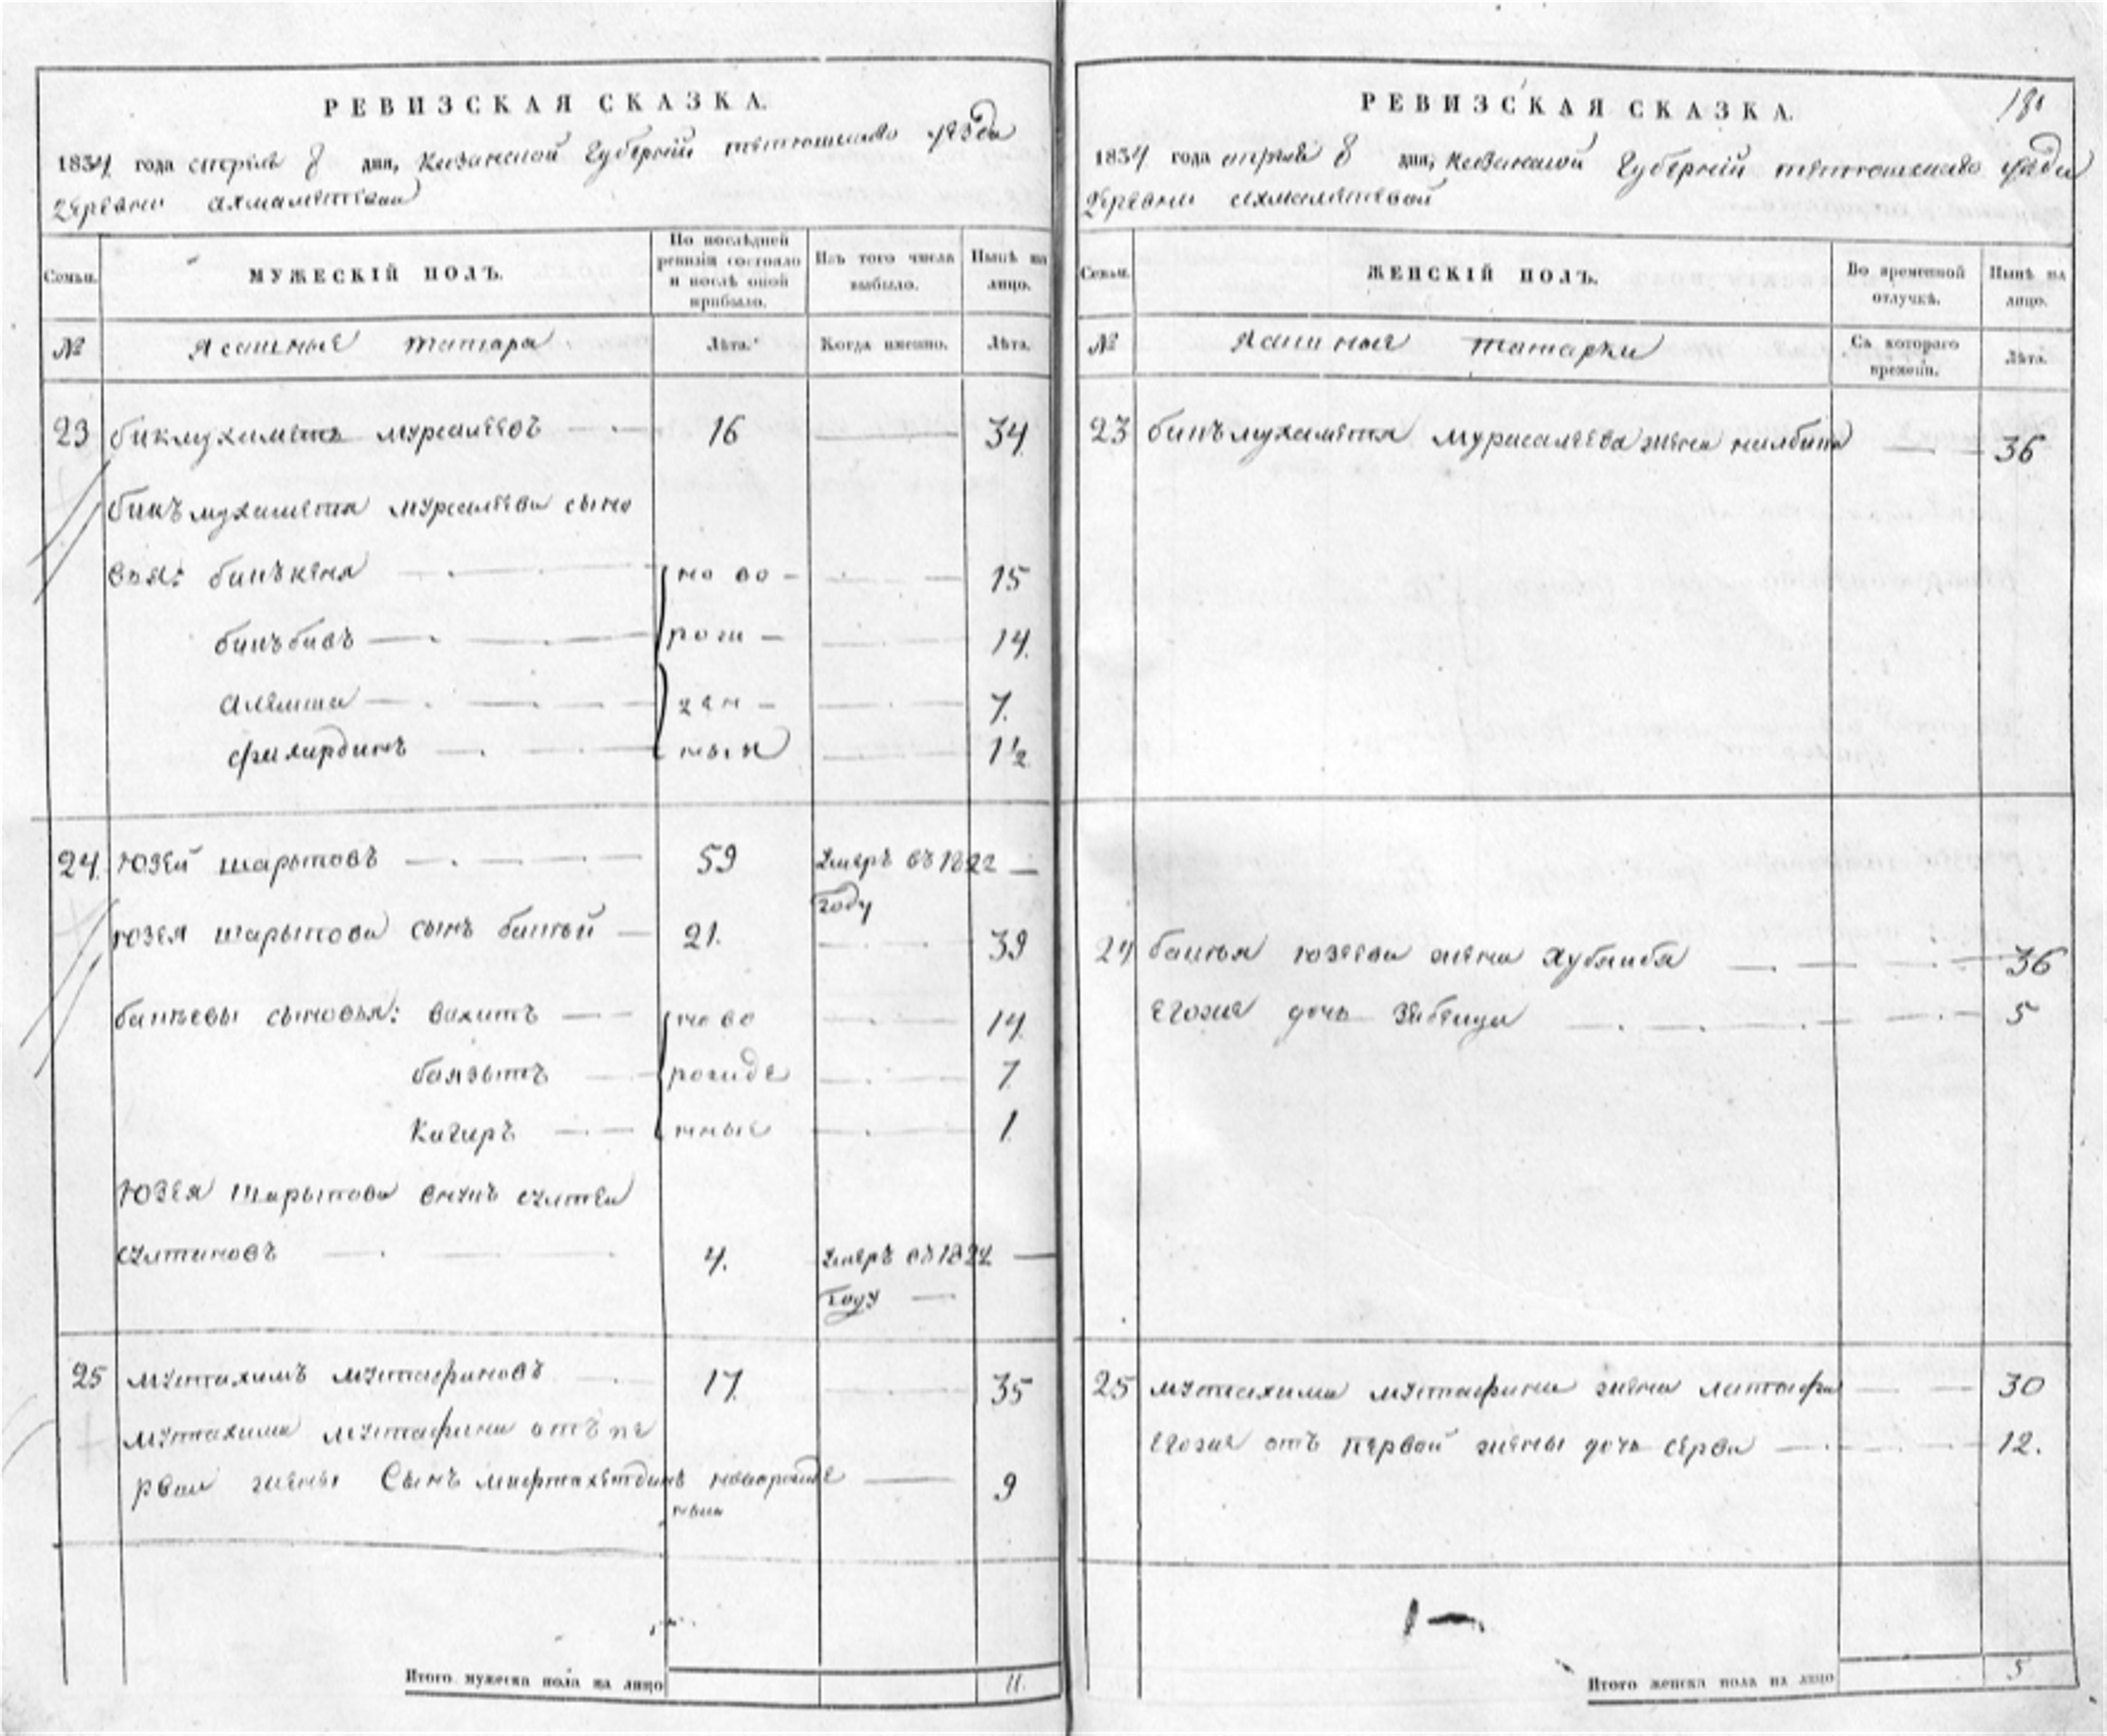 РЕВИЗСКАЯ СКАЗКА.
1834 года апреля 8 дня, Казанской Губернiи тетюшского уезда
деревни ахмаметевой
Семьи. МУЖЕСКІЙ ПОЛЪ. По послѣдней ревизіи состояло и послѣ оной прибыло. Изъ того числа выбыло. Нынѣ на лицо.
№ Ясашные татара Лѣта. Когда именно. Лѣта.
23 бикмухаметъ мурсалеевъ 16 34
бикъмухаметя мурсалеева сыно
вья: бикъкеня ново 15
бикъбавъ рож 14.
алемша ден 7.
фахирдинъ ныя 1 1/2
24. юзей шарыповъ 59 Умеръ въ 1822
году
юзея шарыпова сынъ бакъый 21. 39
бакъевы сыновья: вахитъ ново 14
баязытъ рожде 7
Кагиръ нные 1.
Юзея Шарыпова внукъ султеи
султановъ 4. Умеръ въ 1822
году
25 мустахимъ мустафиновъ 17. 35
мустахима мустафина отъ пе
рвои жены Сынъ мифтахетдинъ новорожде 9
ныи
Итого мужеска пола на лицо 11.
РЕВИЗСКАЯ СКАЗКА. 181
1834 года апреля 8 дня, Казанской Губернiи тетюшского уезда
деревни ахмаметевой
Семьи. ЖЕНСКІЙ ПОЛЪ. Во временной отлучкѣ. Нынѣ на лицо.
№ Ясашные татарки Съ котораго времени. Лѣта.
23 бикъмухаметя мурсалеева жена 36
24 бакъыя юзеева жена хубяиба 36
Егоже дочь Зябяида 5
25 мустахима мустафина жена латыфа 30
Егоже отъ первой жены дочь серва 12.
Итого женска пола на лицо 5